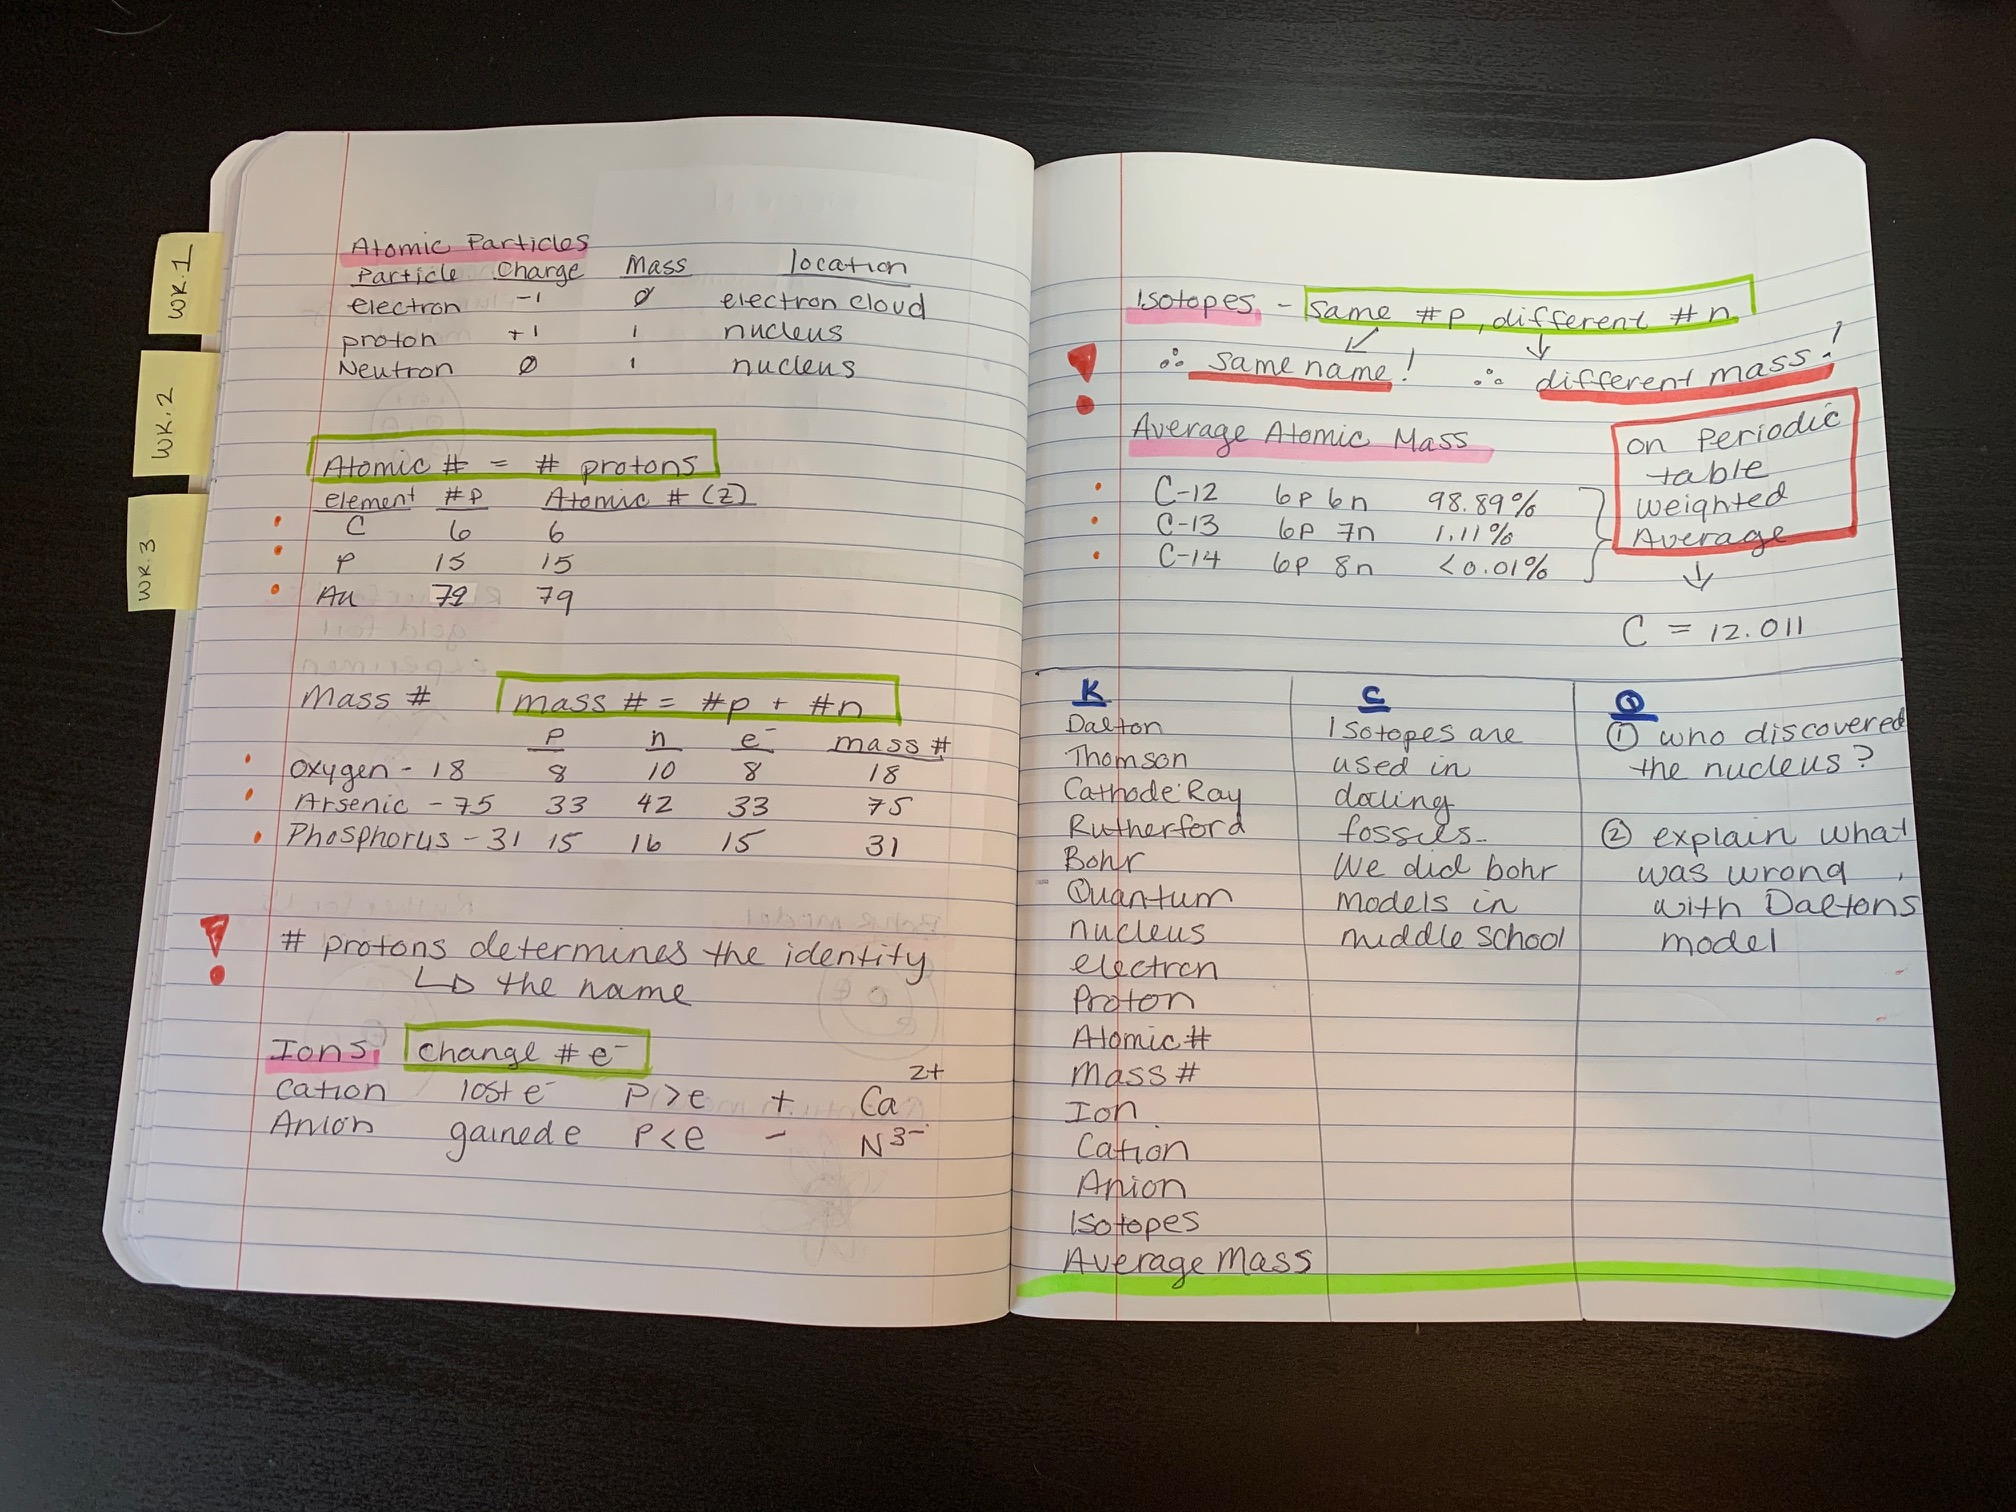 WK.1
WK.2
WK.3
Atomic Particles
Particle Charge Mass location
electron -1 0 electron cloud
proton +1 1 nucleus
Neutron 0 1 nucleus
Atomic # = # protons
element #P Atomic # (Z)
C 6 6
P 15 15
Au 79 79
Mass # mass # = #p + #n
P n e⁻ mass #
Oxygen - 18 8 10 8 18
Arsenic - 75 33 42 33 75
Phosphorus - 31 15 16 15 31
# protons determines the identity
↳ the name
Ions Change # e⁻
Cation lost e⁻ P>e + Ca²⁺
Anion gained e P<e - N³⁻
Isotopes - same #p, different #n
∴ same name! ∴ different mass!
Average Atomic Mass
on Periodic
table
weighted
Average
C-12 6p 6n 98.89%
C-13 6p 7n 1.11%
C-14 6p 8n <0.01%
C = 12.011
K
Dalton
Thomson
Cathode Ray
Rutherford
Bohr
Quantum
nucleus
electron
Proton
Atomic #
Mass #
Ion
Cation
Anion
Isotopes
Average Mass
C
Isotopes are
used in
dating
fossils.
We did bohr
models in
middle school
Q
① who discovered
the nucleus?
② explain what
was wrong
with Daltons
model